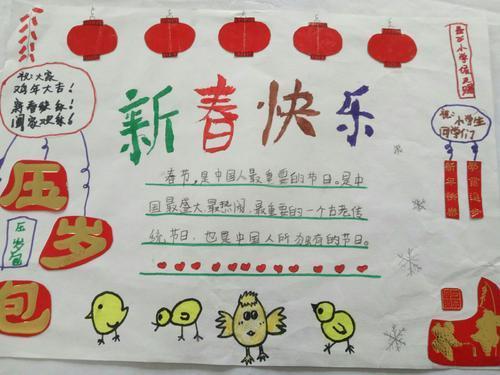 祝:大家
鸡年大吉!
新春快乐!
阖家欢乐!
新春快乐
祝:小学生
同学们
新年快乐
春节,是中国人最重要的节日。是中
国最盛大、最热闹、最重要的一个古老传
统节日,也是中国人所独有的节日。
压
岁
包
压岁包